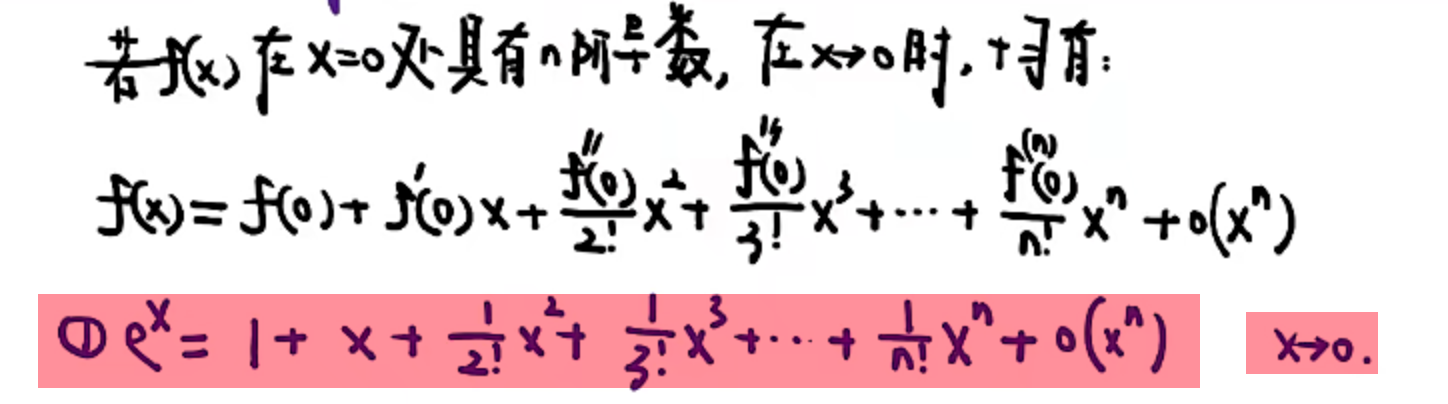 若f(x)在x=0处具有n阶导数,在x→0时,才有:
f(x)=f(0)+f'(0)x+f''(0)/2! x²+f'''(0)/3! x³+⋯+f⁽ⁿ⁾(0)/n! xⁿ+o(xⁿ)
① eˣ=1+x+1/2! x²+1/3! x³+⋯+1/n! xⁿ+o(xⁿ) x→0.